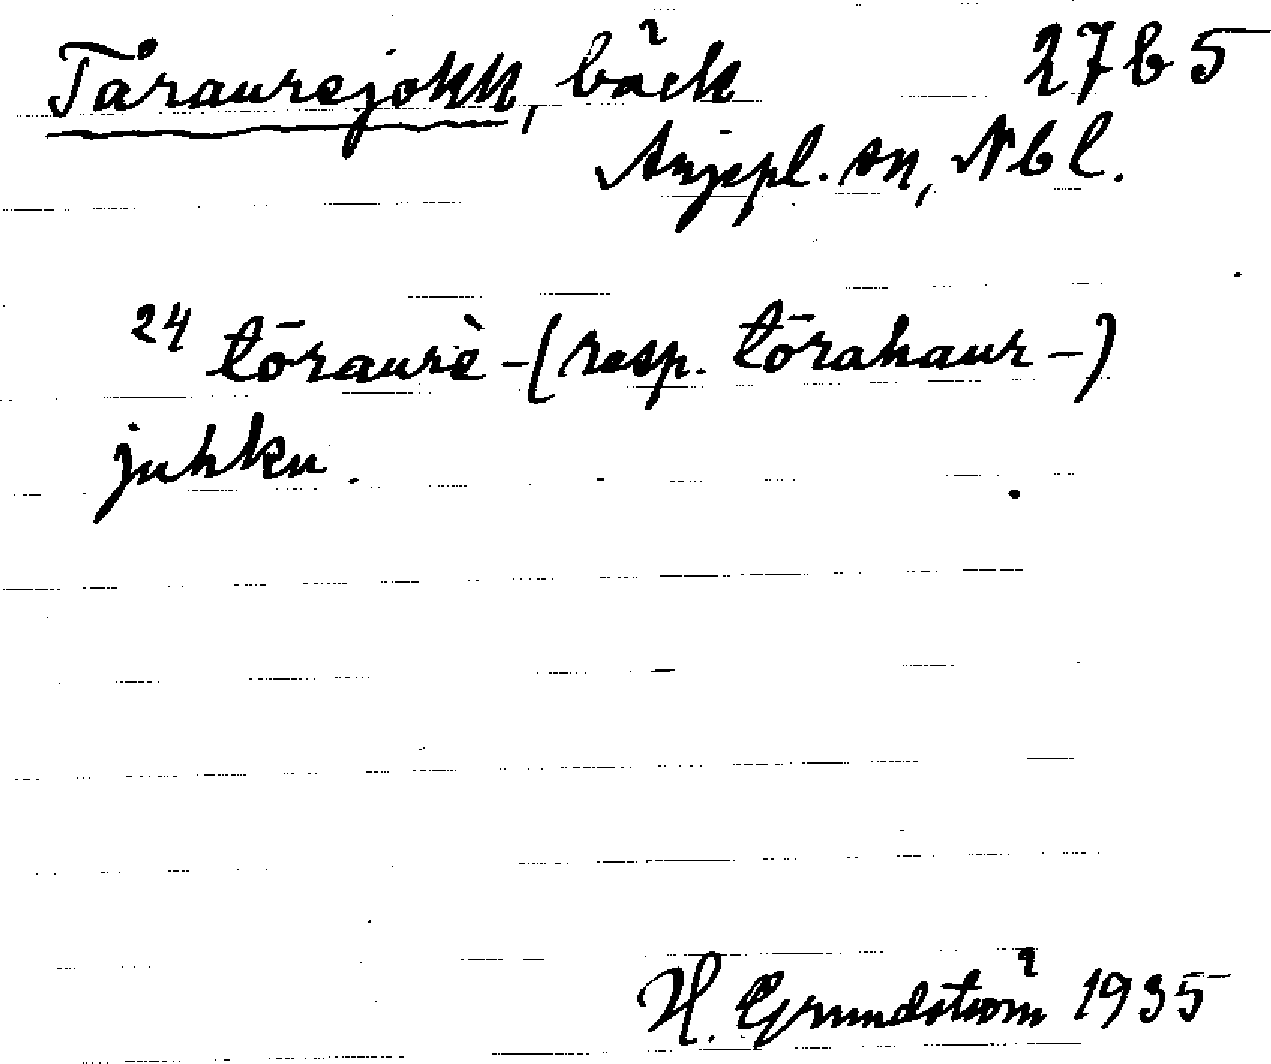 Tåraurejokk, bäck 27b5
Arjepl. sn, Nbl.
24 tōraurè-(resp. tōrahaur-)
juhku.
H. Grundström 1935